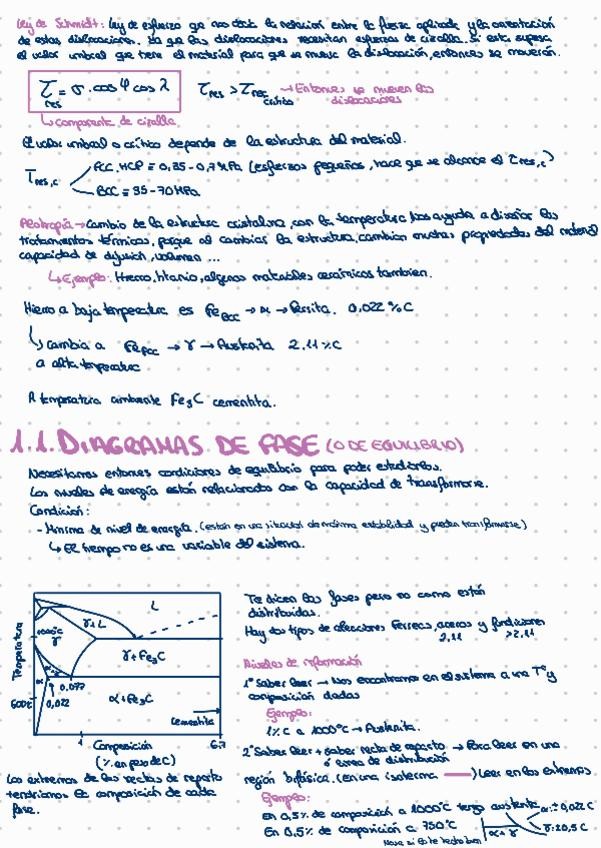 Ley de Schmidt: Ley de esfuerzo qe nos dará la relación entre la fuerza aplicada y la orientación
de estas dislocaciones. Ya qe las dislocaciones necesitan esfuerzos de cizalla. Si esta supera
el valor umbral que tiene el material para que se mueva la dislocación, entonces se moverán.
τres = σ·cos φ cos λ
τres > τres crítico → Entonces se mueven las
dislocaciones
↳ componente de cizalla
El valor umbral o crítico depende de la estructura del material.
τres,c
FCC, HCP = 0,35 - 0,7 MPa (esfuerzos pequeños, hace que se alcance el τres,c)
BCC = 35-70 MPa
Alotropía → Cambio de la estructura cristalina, con la temperatura. Nos ayuda a diseñar los
tratamientos térmicos, porque al cambiar la estructura, cambian muchas propiedades del material
capacidad de difusión, volumen ...
↳ Ejemplo: Hierro, titanio, algunos materiales cerámicos también.
Hierro a baja temperatura es FeBCC → α → Ferrita. 0,022 %C
↳ cambia a FeFCC → γ → Austenita 2.11 %C
a alta temperatura
A temperatura ambiente Fe3C cementita.
1.1. DIAGRAMAS DE FASE (O DE EQUILIBRIO)
Necesitamos entonces condiciones de equilibrio para poder estudiarlos.
Los niveles de energía están relacionados con la capacidad de transformarse.
Condición:
- Mínima de nivel de energía. (están en una situación de máxima estabilidad y pueden transformarse)
↳ El tiempo no es una variable del sistema.
Temperatura
1000°C
600°C
L
γ+L
γ
γ+Fe3C
α
0,077
0,022
α+Fe3C
Cementita
1
6.7
Composición
(% en peso de C)
Los extremos de las rectas de reparto
tendríamos la composición de cada
fase.
Te dicen las fases pero no como están
distribuidas.
Hay dos tipos de aleaciones Férreas, aceros y fundiciones
2,11 >2.11
Niveles de información
1º Saber leer → Nos encontramos en el sistema a una Tº y
composición dadas
Ejemplo:
1% C a 1000°C → Austenita.
2º Saber leer + saber recta de reparto → Para leer en una
ó línea de distribución
región bifásica. (en una isoterma) Leer en los extremos
Ejemplo:
En 0,5% de composición a 1000°C tengo austenita
En 0,5% de composición a 750°C
α+γ
α: 0,022 C
γ: 0,5 C